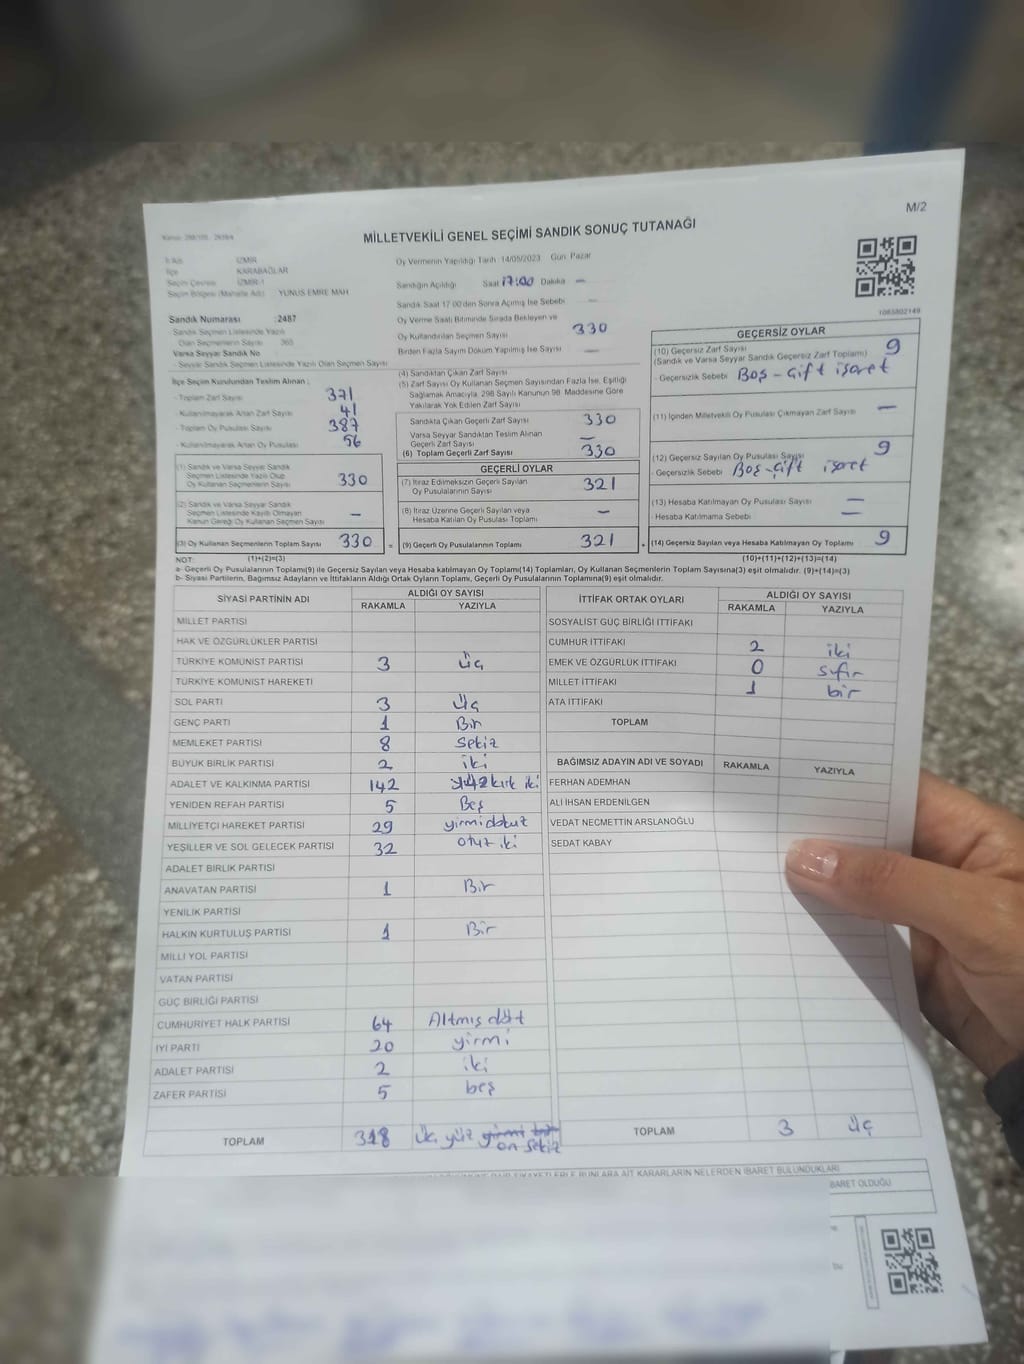 M/2
MİLLETVEKİLİ GENEL SEÇİMİ SANDIK SONUÇ TUTANAĞI
İl Adı İZMİR
İlçe KARABAĞLAR
Seçim Çevresi İZMİR-1
Seçim Bölgesi (Mahalle Adı) : YUNUS EMRE MAH
Sandık Numarası : 2487
Sandık Seçmen Listesinde Yazılı
Olan Seçmenlerin Sayısı 365
Varsa Seyyar Sandık No
- Seyyar Sandık Seçmen Listesinde Yazılı Olan Seçmen Sayısı
İlçe Seçim Kurulundan Teslim Alınan :
- Toplam Zarf Sayısı 371
- Kullanılmayarak Artan Zarf Sayısı 41
- Toplam Oy Pusulası Sayısı 387
- Kullanılmayarak Artan Oy Pusulası 56
(1) Sandık ve Varsa Seyyar Sandık
Seçmen Listesinde Yazılı Olup
Oy Kullanan Seçmenlerin Sayısı 330
(2) Sandık ve Varsa Seyyar Sandık
Seçmen Listesinde Kayıtlı Olmayan
Kanun Gereği Oy Kullanan Seçmen Sayısı –
(3) Oy Kullanan Seçmenlerin Toplam Sayısı 330 =
Oy Vermenin Yapıldığı Tarih : 14/05/2023 Gün Pazar
Sandığın Açıldığı Saat 17:00 Dakika –
Sandık Saat 17.00'den Sonra Açılmış İse Sebebi –
Oy Verme Saati Bitiminde Sırada Bekleyen ve
Oy Kullandırılan Seçmen Sayısı 330
Birden Fazla Sayım Döküm Yapılmış İse Sayısı –
(4) Sandıktan Çıkan Zarf Sayısı
(5) Zarf Sayısı Oy Kullanan Seçmen Sayısından Fazla İse, Eşitliği
Sağlamak Amacıyla, 298 Sayılı Kanunun 98. Maddesine Göre
Yakılarak Yok Edilen Zarf Sayısı
Sandıkta Çıkan Geçerli Zarf Sayısı 330
Varsa Seyyar Sandıktan Teslim Alınan
Geçerli Zarf Sayısı –
(6) Toplam Geçerli Zarf Sayısı 330
GEÇERLİ OYLAR
(7) İtiraz Edilmeksizin Geçerli Sayılan
Oy Pusulalarının Sayısı 321
(8) İtiraz Üzerine Geçerli Sayılan veya
Hesaba Katılan Oy Pusulası Toplamı –
(9) Geçerli Oy Pusulalarının Toplamı 321 +
1065802149
GEÇERSİZ OYLAR
(10) Geçersiz Zarf Sayısı 9
(Sandık ve Varsa Seyyar Sandık Geçersiz Zarf Toplamı)
- Geçersizlik Sebebi Boş - Çift işaret
(11) İçinden Milletvekili Oy Pusulası Çıkmayan Zarf Sayısı –
(12) Geçersiz Sayılan Oy Pusulası Sayısı 9
- Geçersizlik Sebebi Boş - Çift işaret
(13) Hesaba Katılmayan Oy Pusulası Sayısı –
Hesaba Katılmama Sebebi –
(14) Geçersiz Sayılan veya Hesaba Katılmayan Oy Toplamı 9
NOT: (1)+(2)=(3) (10)+(11)+(12)+(13)=(14)
a- Geçerli Oy Pusulalarının Toplamı(9) ile Geçersiz Sayılan veya Hesaba katılmayan Oy Toplamı(14) Toplamları, Oy Kullanan Seçmenlerin Toplam Sayısına(3) eşit olmalıdır. (9)+(14)=(3)
b- Siyasi Partilerin, Bağımsız Adayların ve İttifakların Aldığı Ortak Oyların Toplamı, Geçerli Oy Pusulalarının Toplamına(9) eşit olmalıdır.
SİYASİ PARTİNİN ADI ALDIĞI OY SAYISI
RAKAMLA YAZIYLA
MİLLET PARTİSİ
HAK VE ÖZGÜRLÜKLER PARTİSİ
TÜRKİYE KOMÜNİST PARTİSİ 3 Üç
TÜRKİYE KOMÜNİST HAREKETİ
SOL PARTİ 3 Üç
GENÇ PARTİ 1 Bir
MEMLEKET PARTİSİ 8 Sekiz
BÜYÜK BİRLİK PARTİSİ 2 iki
ADALET VE KALKINMA PARTİSİ 142 kırk iki
YENİDEN REFAH PARTİSİ 5 Beş
MİLLİYETÇİ HAREKET PARTİSİ 29 yirmi dokuz
YEŞİLLER VE SOL GELECEK PARTİSİ 32 otuz iki
ADALET BİRLİK PARTİSİ
ANAVATAN PARTİSİ 1 Bir
YENİLİK PARTİSİ
HALKIN KURTULUŞ PARTİSİ 1 Bir
MİLLİ YOL PARTİSİ
VATAN PARTİSİ
GÜÇ BİRLİĞİ PARTİSİ
CUMHURİYET HALK PARTİSİ 64 Altmış dört
İYİ PARTİ 20 yirmi
ADALET PARTİSİ 2 iki
ZAFER PARTİSİ 5 beş
TOPLAM 318 üç yüz yirmi
on sekiz
İTTİFAK ORTAK OYLARI ALDIĞI OY SAYISI
RAKAMLA YAZIYLA
SOSYALİST GÜÇ BİRLİĞİ İTTİFAKI
CUMHUR İTTİFAKI 2 iki
EMEK VE ÖZGÜRLÜK İTTİFAKI 0 sıfır
MİLLET İTTİFAKI 1 bir
ATA İTTİFAKI
TOPLAM
BAĞIMSIZ ADAYIN ADI VE SOYADI RAKAMLA YAZIYLA
FERHAN ADEMHAN
ALİ İHSAN ERDENİLGEN
VEDAT NECMETTİN ARSLANOĞLU
SEDAT KABAY
TOPLAM 3 üç
KARARLARIN NELERDEN İBARET BULUNDUKLARI
İBARET OLDUĞU